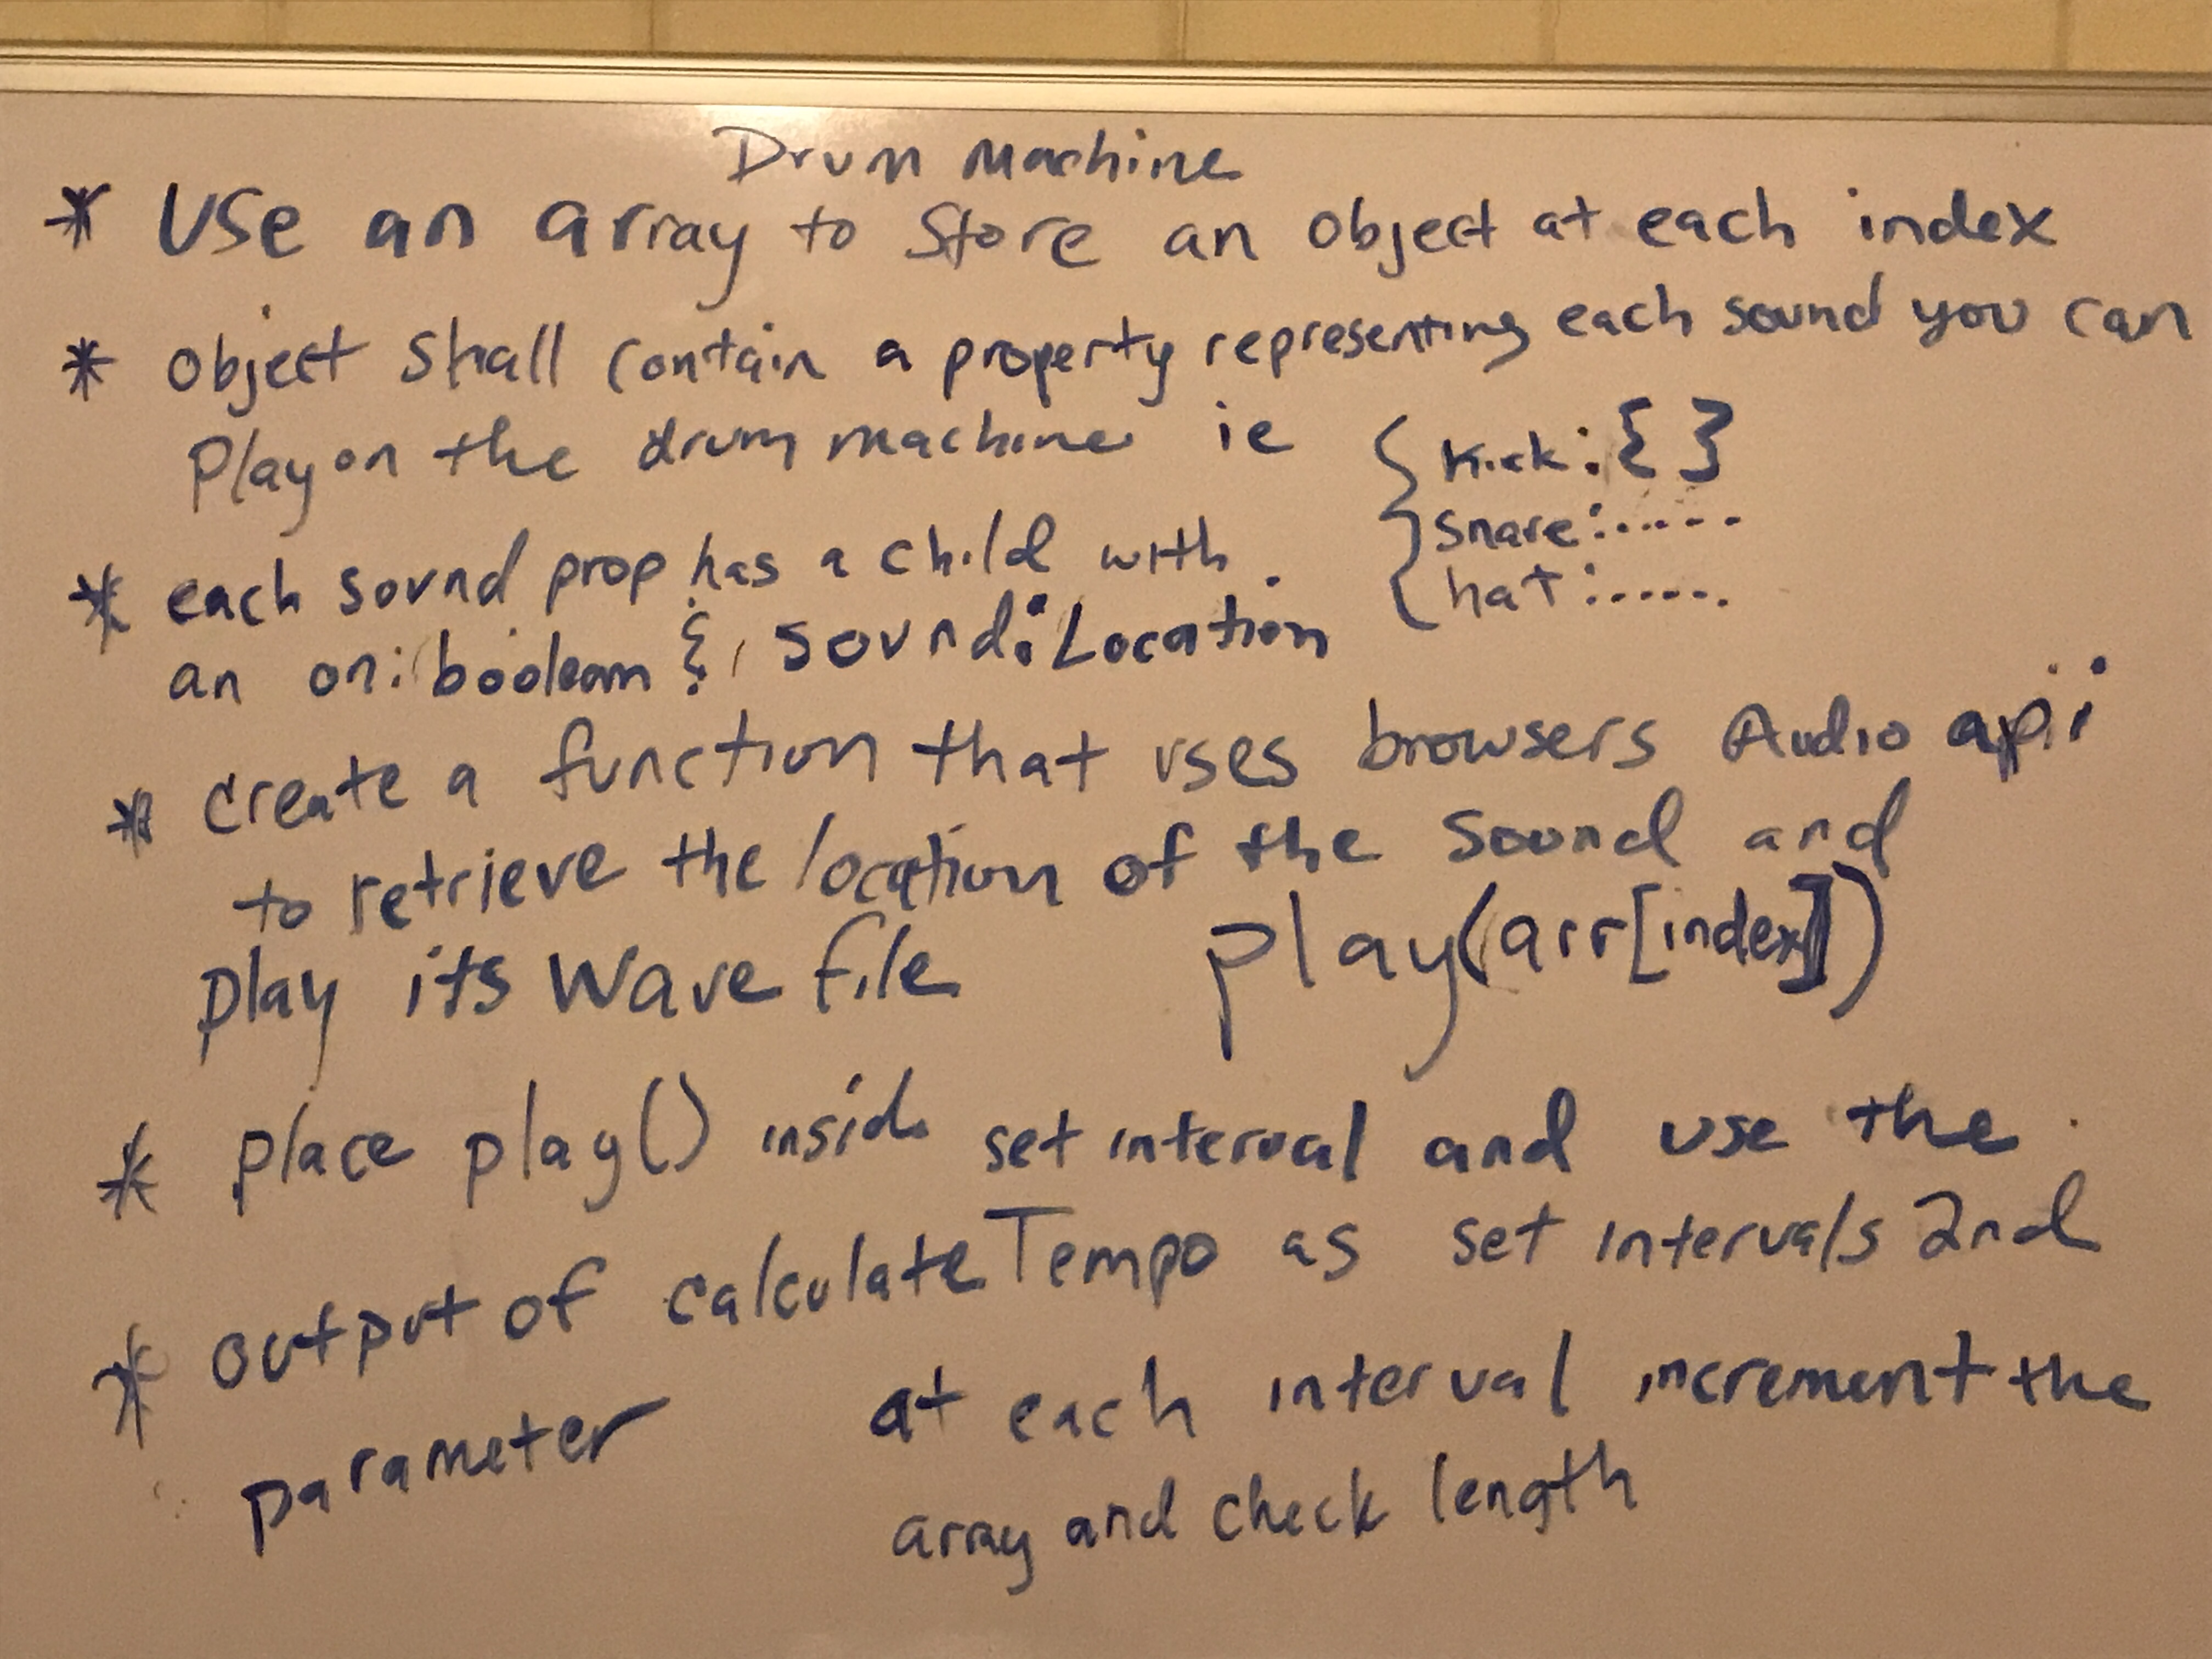 Drum Machine
* Use an array to store an object at each index
* object shall contain a property representing each sound you can
play on the drum machine ie { Kick: { }
snare:.....
hat:.....
* each sound prop has a child with
an on: boolean &, sound: Location
* create a function that uses browsers Audio api
to retrieve the location of the sound and
play its wave file play(arr[index])
* place play() inside set interval and use the
* output of calculateTempo as set intervals 2nd
parameter at each interval increment the
array and check length